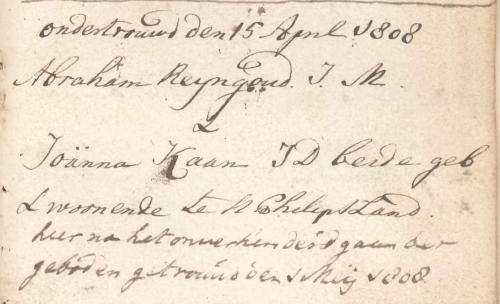 ondertrouwd den 15 April 1808
Abraham Reyngoud J. M.
&
Joänna Kaan J D beide geb
& woonende te St Philipsland.
hier na het onverhinderd gaan der
geboden getrouwd den 1 Meij 1808